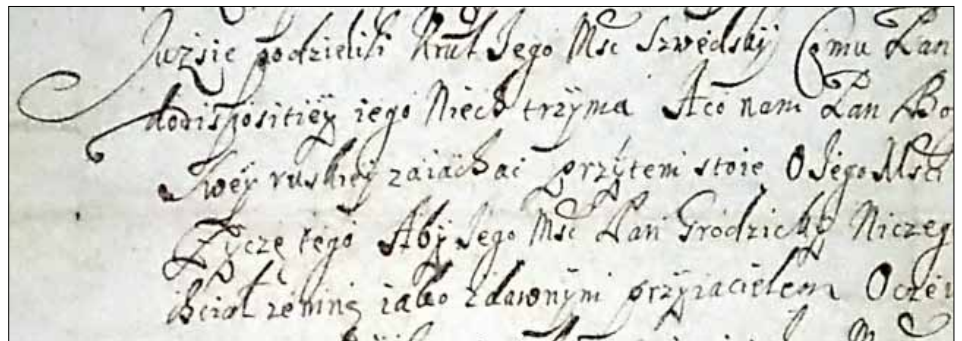 Juzsie podzielili Krul Jego Msc Szwedskÿ Czmu Pan
do dispositieÿ iego Niech trzÿma Aco nam Pan Bo
Sweÿ ruskieÿ zaiachac przÿtem stoie O Jego Msci
Zÿcze tego Abÿ Jego Msc Pan Grodzickÿ Niczeg
chciał zemną iako zdawnÿm przÿiacielem Oczeÿ